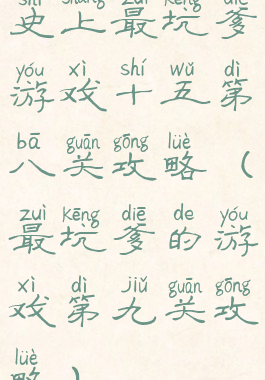 史上最坑爹
yóu xì shí wǔ dì
游戏十五第
bā guān gōng lüè
八关攻略（
zuì kēng diē de yóu
最坑爹的游
xì dì jiǔ guān gōng
戏第九关攻
lüè
略）